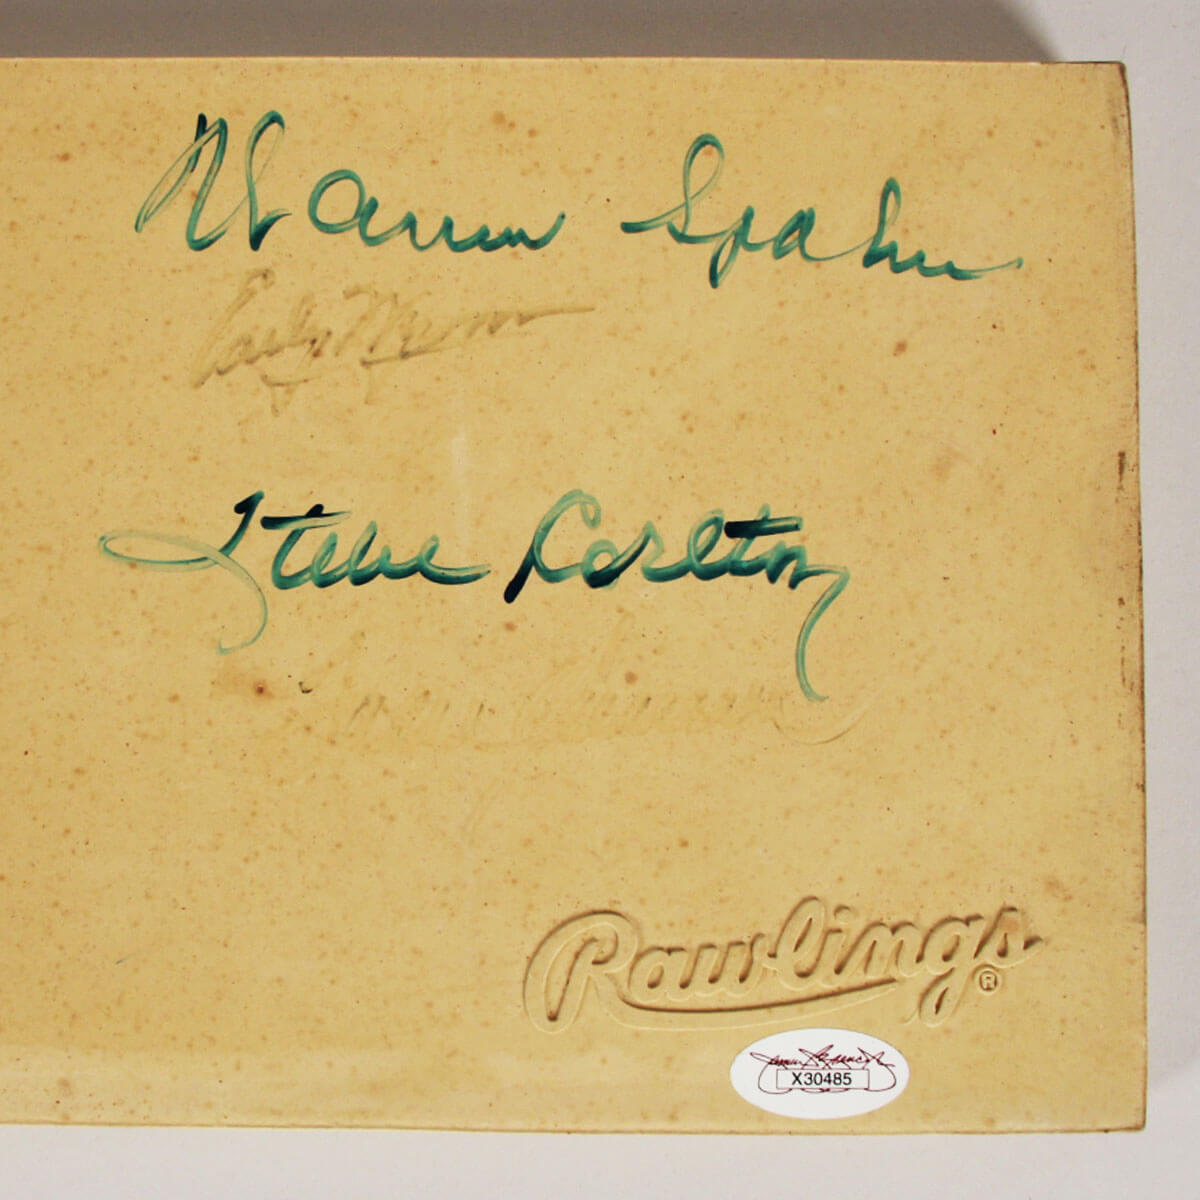 Warren Spahn
Early Wynn
Steve Carlton
Rawlings
®
X30485